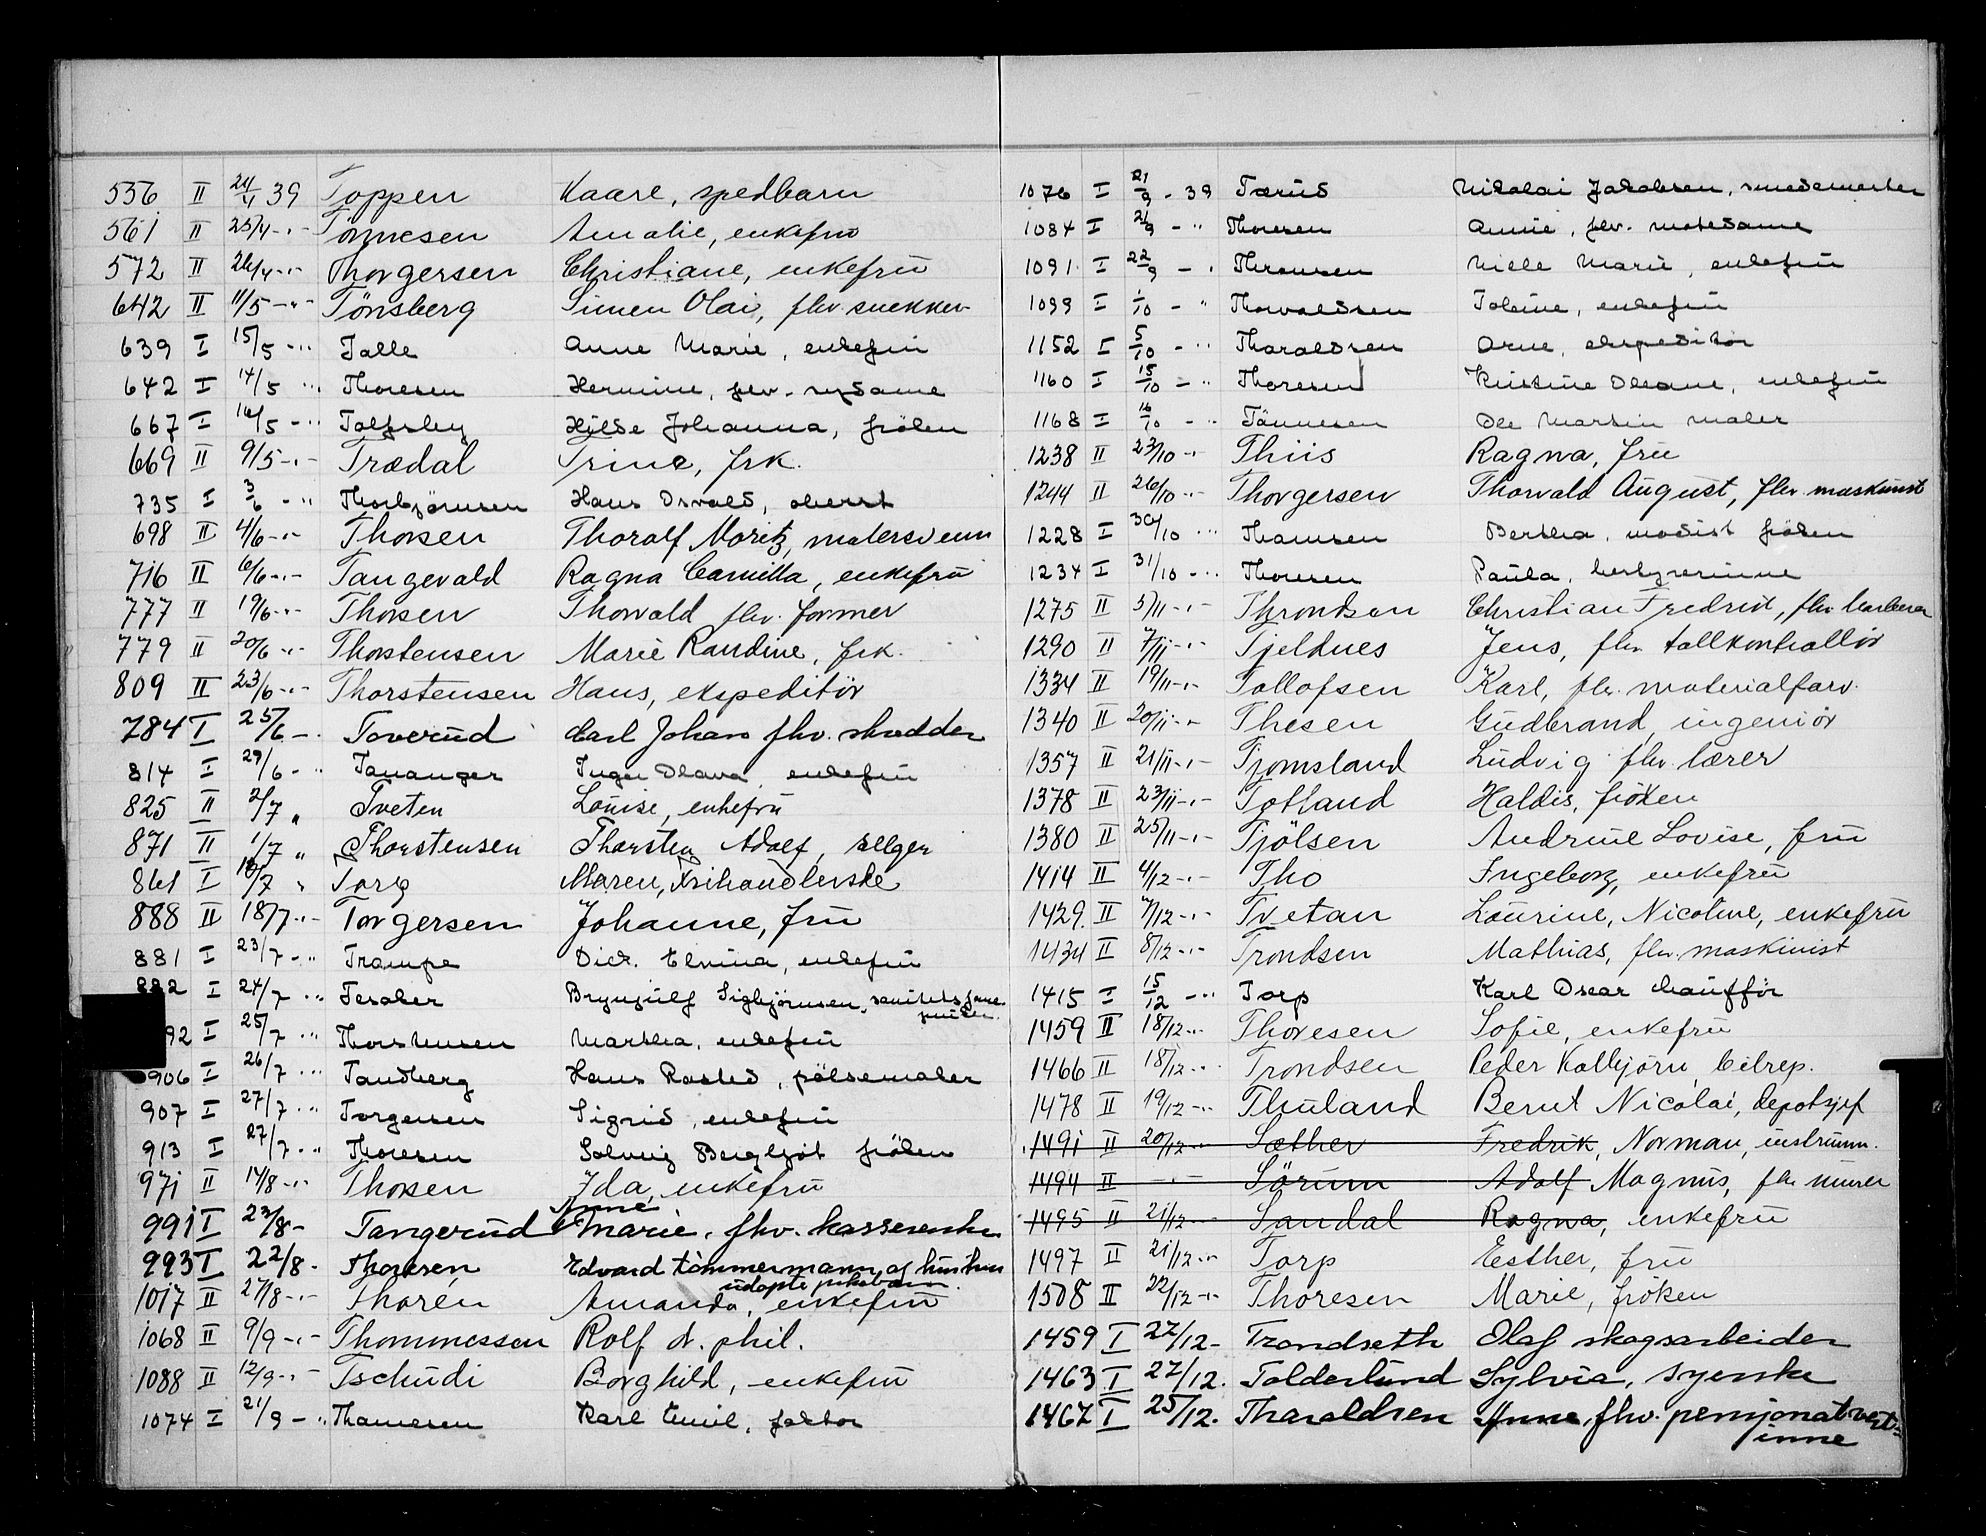 556 II 24/4 39 Toppen Kaare, spedbarn
561 II 25/4 -"- Tönnesen Amalie, enkefru
572 II 26/4 -"- Thorgersen Christiane, enkefrü
642 II 11/5 -"- Tönsberg Simen Olai, fhv. snekker
639 I 15/5 -"- Talle Anne Marie, enkefrü
642 I 14/5 -"- Thoresen Hermine, fhv. sydame
667 I 16/5 -"- Tolfsby Hilde Johanna, fröken
669 II 9/5 -"- Trædal Trine, frk.
735 I 3/6 -"- Thorbjörnsen Hans Osvald, oberst
698 II 4/6 -"- Thorsen Thoralf Moritz, malersvenn
716 II 6/6 -"- Tangevald Ragna Camilla, enkefrü
777 II 19/6 -"- Thorsen Thorvald fhv. former
779 II 20/6 -"- Thorstensen Marie Randine, frk.
809 II 23/6 -"- Thorstensen Hans, ekspeditör
784 I 25/6 - Toverüd Carl Johan fhv. skredder
814 I 29/6 -" Tananger Inga Olava enkefrü
825 II 2/7 " Tveten Loüise, enkefrü
871 II 1/7 " Thorstensen Thorsten Adolf, selger
861 I 18/7 " Torp Maren, frihandlerske
888 II 18/7 -"- Torgersen Johanne, frü
881 I 23/7 -" Trampe Dick. Elvina, enkefrü
882 I 24/7 -" Tesaker Brynjülf Sigbjörnsen, sanitets
92 I 25/7 -" Thorstensen Martha, enkefrü
906 I 26/7 -" Tandberg Hans Rasted, pölsemaker
907 I 27/7 -" Torgersen Sigrid, enkefrü
913 I 27/7 -" Thoresen Solveig Bergljot fröken
971 II 14/8 -"- Thorsen Ida, enkefrü
Anne
991 I 23/8 - Tangerüd Marie, fhv. kasserske
993 I 22/8 - Thoresen Edvard tömmermann og hustru
udøpte pikebarn
1017 II 27/8 -"- Thorén Amanda, enkefrü
1068 II 9/9 -"- Thommessen Rolf dr. phil.
1088 II 12/9 -"- Tschüdi Borghild, enkefrü
1074 I 21/9 -" Thomesen Karl Emil, faktor
1076 I 21/9 - 39 Tærüd Nikolai Jakobsen, smedemester
1084 I 21/9 -" Thoresen Annie, fhv. motedame
1091 I 22/9 -" Thronsen Nille Marie, enkefrü
1099 I 1/10 -" Thorvaldsen Toline, enkefrü
1152 I 5/10 -" Tharaldsen Arne, ekspeditör
1160 I 15/10 -" Thoresen Kristine Oleane, enkefrü
1168 I 16/10 -" Tönnesen Ole Martin maler
1238 II 23/10 -" Thiis Ragna, frü
1244 II 26/10 -" Thorgersen Thorvald Aügüst, fhv. maskinist
1228 I 30/10 -" Thomsen Bertha, modist fröken
1234 I 31/10 -" Thoresen Paula, bestyrerinne
1275 II 5/11 -"- Throndsen Christian Fredrik, fhv. barberer
1290 II 7/11 -"- Tjeldnes Jens, fhv. tollkontrollör
1334 II 19/11 -"- Tollofsen Karl, fhv. materialforv.
1340 II 20/11 -"- Thesen Güdbrand, ingeniör
1357 II 21/11 -"- Tjomsland Lüdvig fhv. lærer
1378 II 23/11 -"- Totland Haldis, fröken
1380 II 25/11 -"- Tjölsen Andrine Lovise, frü
1414 II 4/12 -"- Tho Ingeborg, enkefrü
1429 II 7/12 -"- Tvetan Laürine, Nicoline, enkefrü
1434 II 8/12 -"- Trondsen Mathias, fhv. maskinist
1415 I 15/12 -" Torp Karl Oscar chaufför
1459 II 18/12 -" Thoresen Sofie, enkefrü
1466 II 18/12 -" Trondsen Peder Kolbjörn, bilrep.
1478 II 19/12 -" Thüland Bernt Nicolai, depotsjef
1491 II 20/12 -" Sæther Fredrik, Norman, instrumn.
1494 II -"- Sörüm Adolf Magnüs, fhv. mürer
1495 II 21/12 -" Sandal Ragna, enkefrü
1497 II 21/12 -" Torp Esther, frü
1508 II 22/12 -"- Thoresen Marie, fröken
1459 I 22/12 - Trondseth Olaf skogsarbeider
1463 I 22/12. Tolderlünd Sylvia, syerske
1467 I 25/12. Tharaldsen Anne, fhv. pensjonatvert=
inne